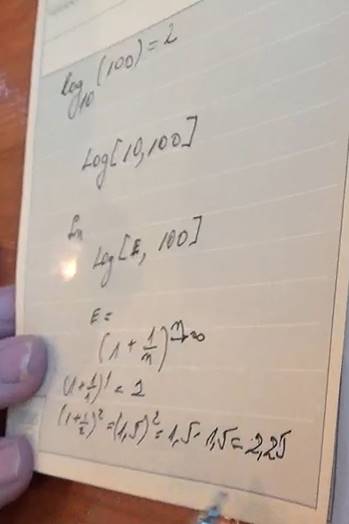 log₁₀(100) = 2
Log[10,100]
Ln
Log[E, 100]
E =
(1 + 1/n)ⁿ→∞
(1+1/1)¹ = 2
(1+1/2)² = (1,5)² = 1,5 · 1,5 = 2,25